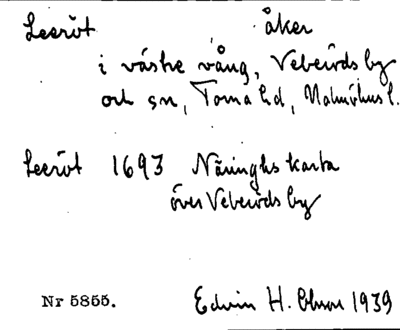 Leeröt åker
i västre vång, Veberöds by
och sn, Torna hd, Malmöhus l.
Leeröt 1693 Näringhs karta
över Veberöds by
Nr 5855. Edvin H. Olsson 1939